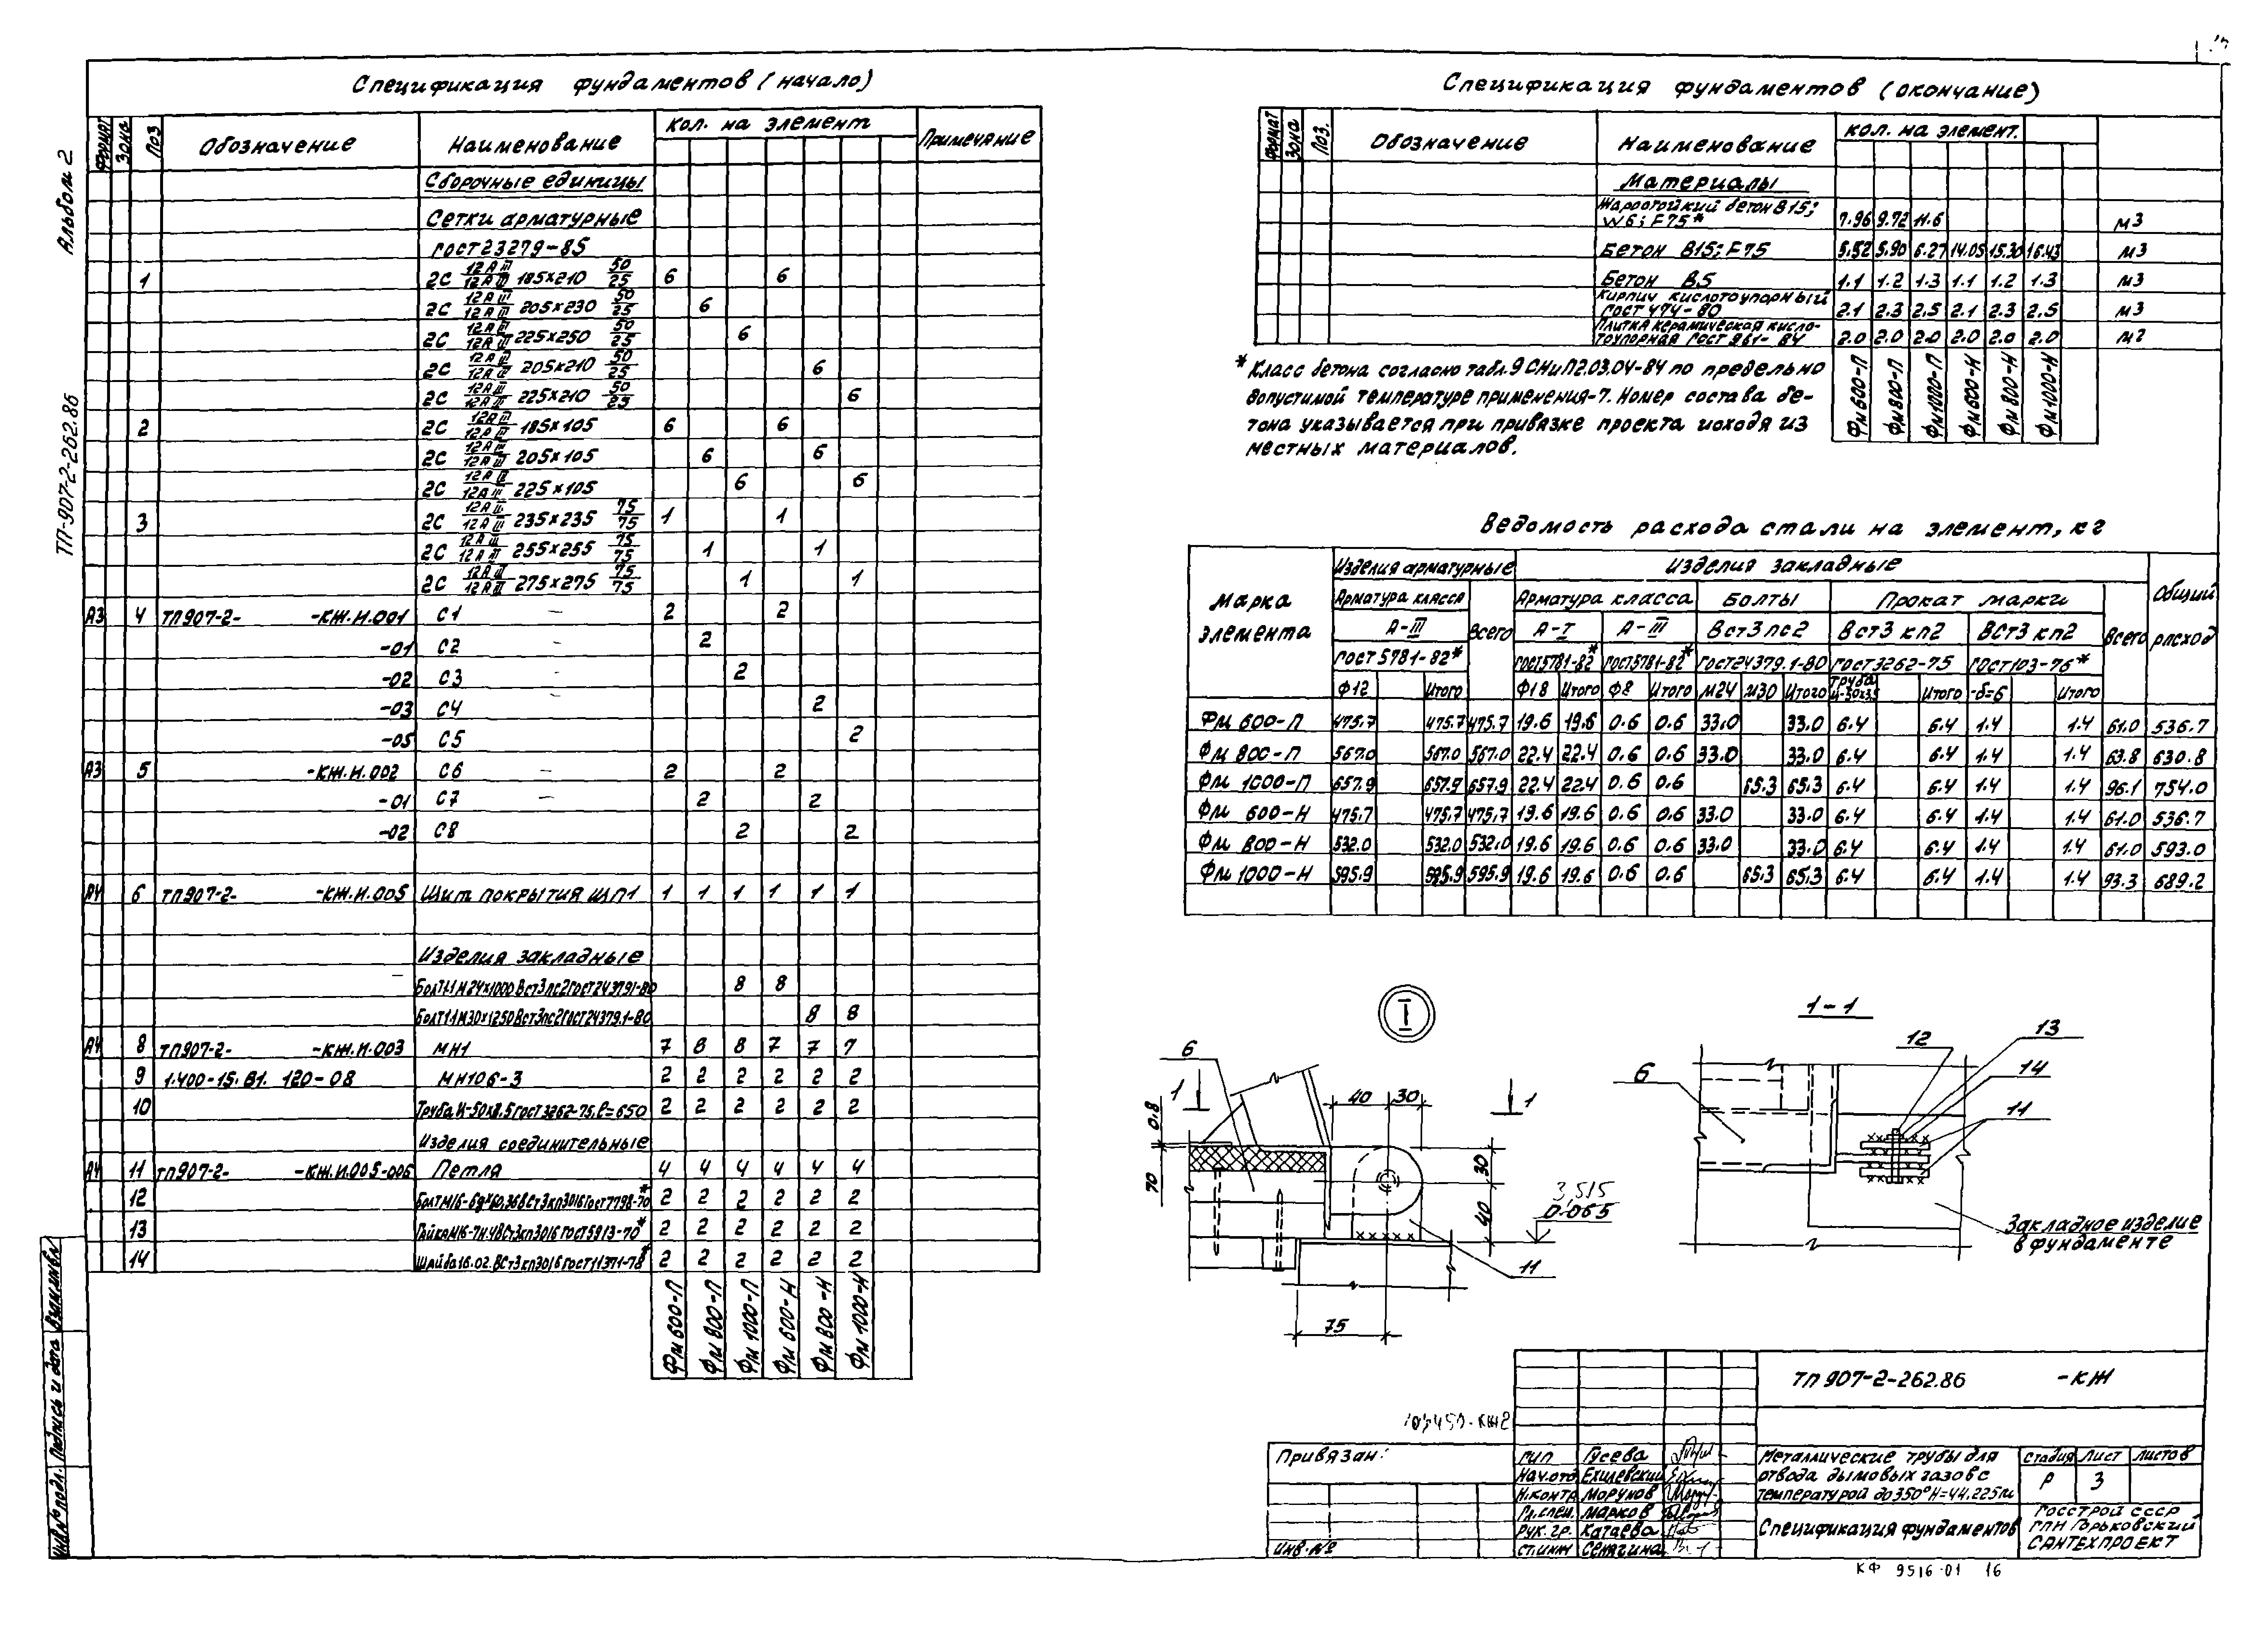 Альбом 2
ТП-907-2-262.86
Спецификация фундаментов (начало)
Формат Зона Поз Обозначение Наименование Кол. на элемент Примечание
Сборочные единицы
Сетки арматурные
ГОСТ 23279-85
1 2С 12АIII/12АIII 185х210 50/25 6 6
2С 12АIII/12АIII 205х230 50/25 6
2С 12АIII/12АIII 225х250 50/25 6
2С 12АIII/12АIII 205х210 50/25 6
2С 12АIII/12АIII 225х210 50/25 6
2 2С 12АIII/12АIII 185х105 6 6
2С 12АIII/12АIII 205х105 6 6
2С 12АIII/12АIII 225х105 6 6
3 2С 12АIII/12АIII 235х235 75/75 1 1
2С 12АIII/12АIII 255х255 75/75 1 1
2С 12АIII/12АIII 275х275 75/75 1 1
А3 4 ТП907-2- -КЖ.И.001 С1 2 2
-01 С2 2
-02 С3 2
-03 С4 2
-05 С5 2
А3 5 -КЖ.И.002 С6 2 2
-01 С7 2 2
-02 С8 2 2
А4 6 ТП907-2- -КЖ.И.005 Щит покрытия ЩП1 1 1 1 1 1 1
Изделия закладные
Болт1.1М24х1000 ВСт3пс2 ГОСТ24379.1-80 8 8
Болт1.1М30х1250 ВСт3пс2 ГОСТ24379.1-80 8 8
А4 8 ТП907-2- -КЖ.И.003 МН1 7 8 8 7 7 7
9 1.400-15.В1. 120-08 МН106-3 2 2 2 2 2 2
10 Труба Ц-50х3.5 ГОСТ 3262-75, ℓ=650 2 2 2 2 2 2
Изделия соединительные
А4 11 ТП907-2- -КЖ.И.005-005 Петля 4 4 4 4 4 4
12 Болт М16-6gх60.36ВСт3кп3016 ГОСТ7798-70* 2 2 2 2 2 2
13 Гайка М16-7Н.4ВСт3кп3016 ГОСТ5913-70* 2 2 2 2 2 2
14 Шайба 16.02.ВСт3кп3016 ГОСТ11371-78* 2 2 2 2 2 2
Фм 600-П Фм 800-П Фм 1000-П Фм 600-Н Фм 800-Н Фм 1000-Н
Спецификация фундаментов (окончание)
Формат Зона Поз. Обозначение Наименование Кол. на элемент.
Материалы
Жаростойкий бетон В15;
W6; F75* 7.96 9.72 11.6 м3
Бетон В15; F75 5.52 5.90 6.27 14.05 15.30 16.43 м3
Бетон В5 1.1 1.2 1.3 1.1 1.2 1.3 м3
Кирпич кислотоупорный
ГОСТ 474-80 2.1 2.3 2.5 2.1 2.3 2.5 м3
Плитка керамическая кисло-
тоупорная ГОСТ 961-84 2.0 2.0 2.0 2.0 2.0 2.0 м2
Фм 600-П Фм 800-П Фм 1000-П Фм 600-Н Фм 800-Н Фм 1000-Н
* Класс бетона согласно табл.9 СНиП2.03.04-84 по предельно
допустимой температуре применения-7. Номер состава бе-
тона указывается при привязке проекта исходя из
местных материалов.
Ведомость расхода стали на элемент, кг
Марка элемента Изделия арматурные Изделия закладные Общий расход
Арматура класса Всего Арматура класса Болты Прокат марки Всего
А-III А-I А-III Вст3пс2 Вст3кп2 Вст3кп2
ГОСТ 5781-82* ГОСТ5781-82* ГОСТ5781-82* ГОСТ24379.1-80 ГОСТ3262-75 ГОСТ103-76*
Ф12 Итого Ф18 Итого Ф8 Итого М24 М30 Итого Труба Ц-50х3.5 Итого -δ=6 Итого
Фм 600-П 475.7 475.7 475.7 19.6 19.6 0.6 0.6 33.0 33.0 6.4 6.4 1.4 1.4 61.0 536.7
Фм 800-П 567.0 567.0 567.0 22.4 22.4 0.6 0.6 33.0 33.0 6.4 6.4 1.4 1.4 63.8 630.8
Фм 1000-П 657.9 657.9 657.9 22.4 22.4 0.6 0.6 65.3 65.3 6.4 6.4 1.4 1.4 96.1 754.0
Фм 600-Н 475.7 475.7 475.7 19.6 19.6 0.6 0.6 33.0 33.0 6.4 6.4 1.4 1.4 61.0 536.7
Фм 800-Н 532.0 532.0 532.0 19.6 19.6 0.6 0.6 33.0 33.0 6.4 6.4 1.4 1.4 61.0 593.0
Фм 1000-Н 595.9 595.9 595.9 19.6 19.6 0.6 0.6 65.3 65.3 6.4 6.4 1.4 1.4 93.3 689.2
I
6
1 1
40 30
0.8
70
30
40
3,515
0.065
11
75
1-1
12
13
14
11
6
Закладное изделие
в фундаменте
Взам.инв.№
Подпись и дата
Инв.№ подл.
ТП 907-2-262.86 -КЖ
Привязан:
Инв.№
ГИП Гусева
Нач.отд Ехилевский
Н.контр Морунов
Гл.спец. Марков
Рук.гр. Катаева
Ст.инж Сенягина
Металлические трубы для
отвода дымовых газов с
температурой до 350° Н=44.225м
Стадия Лист Листов
Р 3
Спецификация фундаментов
Госстрой СССР
ГПИ Горьковский
Сантехпроект
КФ 9516-01 16